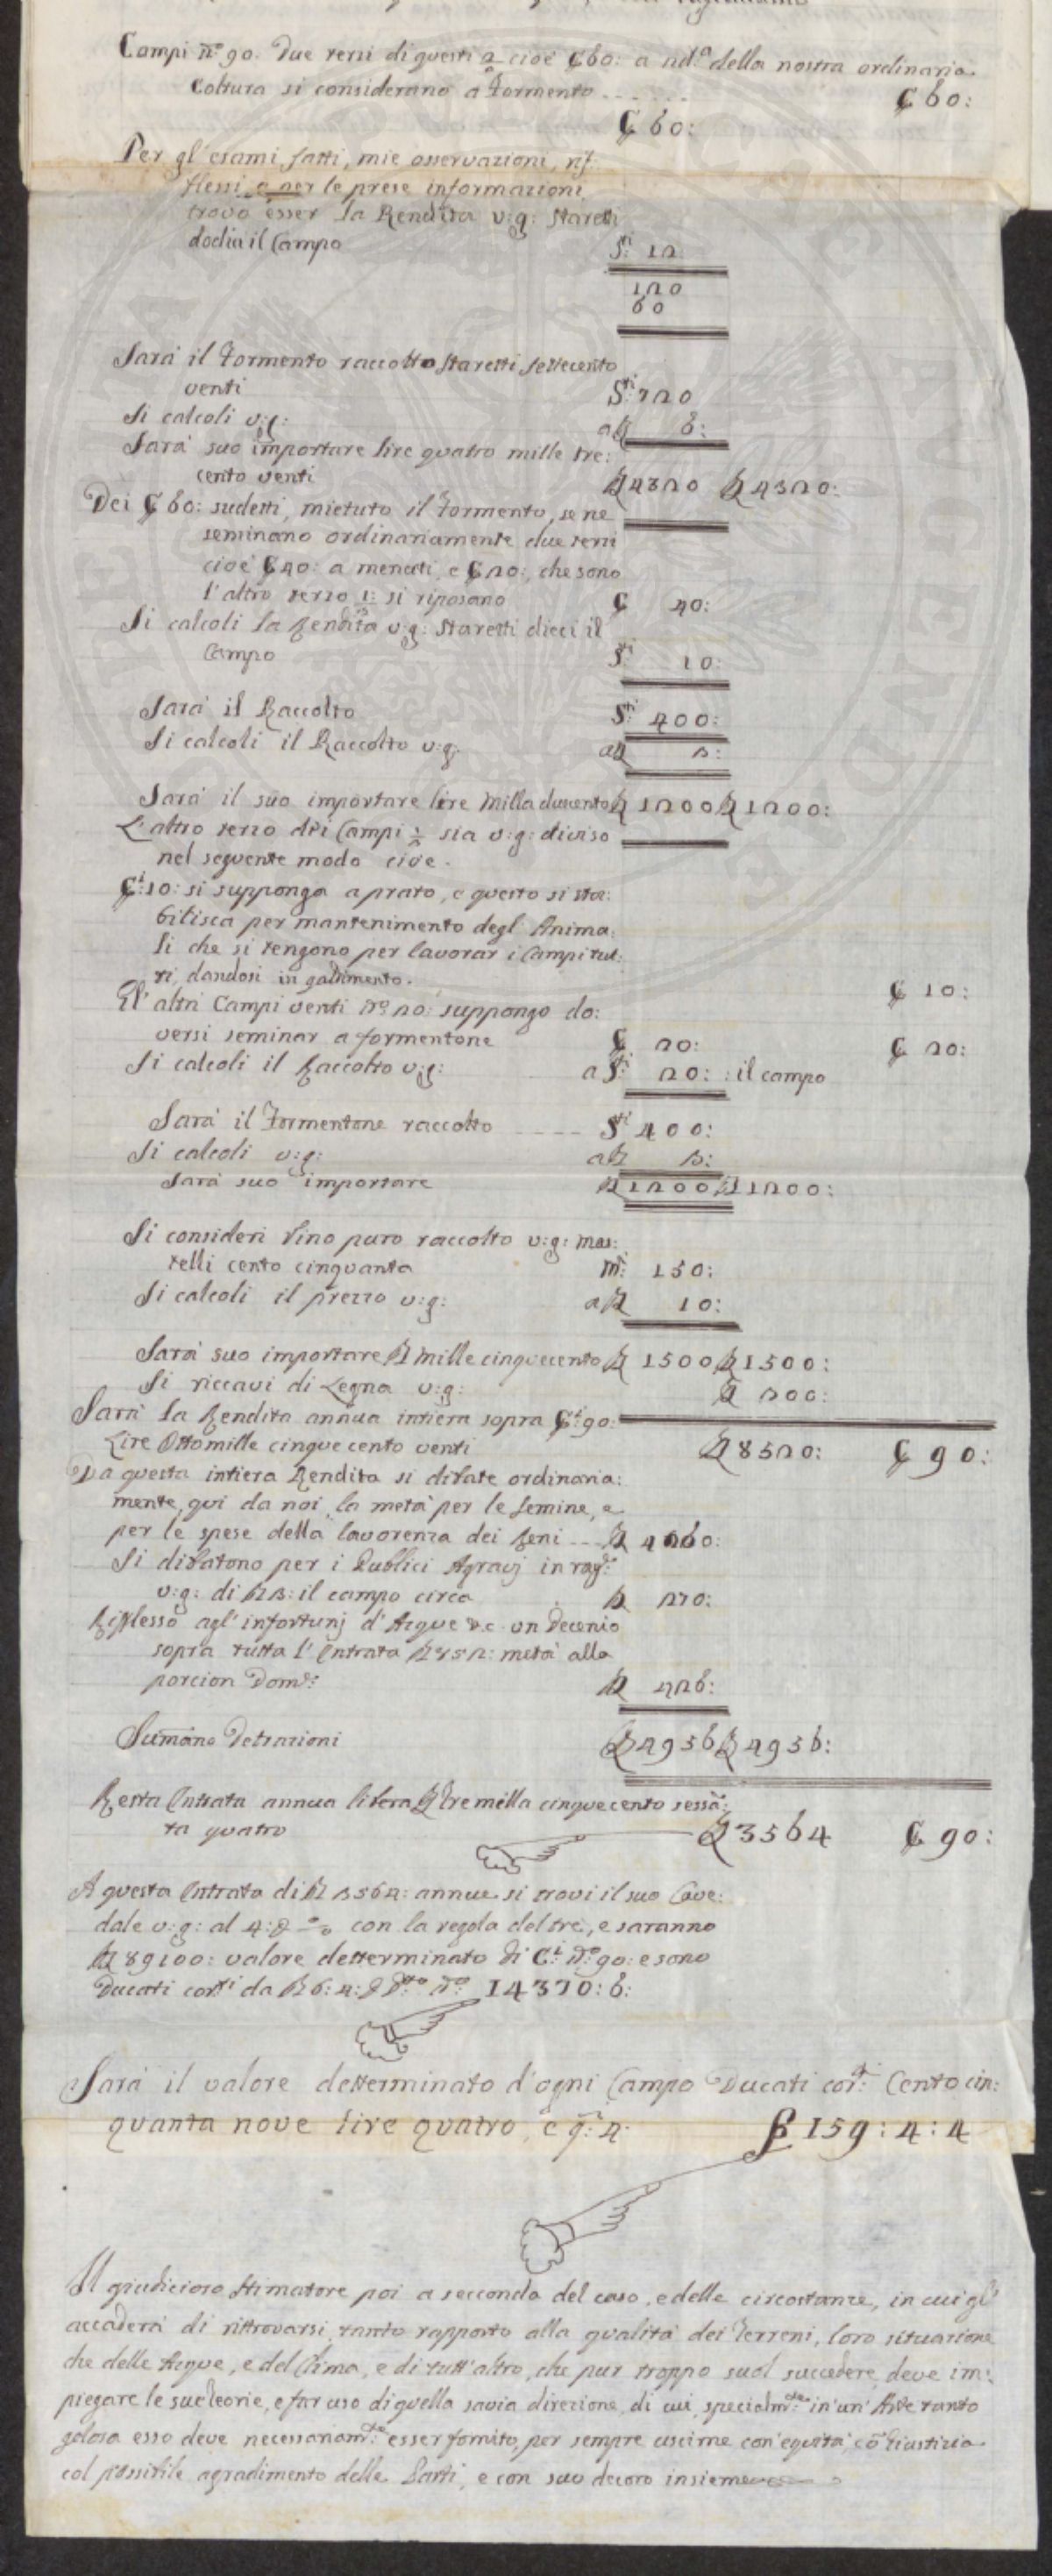 Campi n.º 90. Due terzi di questi cioè C 60: a nd.ª della nostra ordinaria
Coltura si considerano a formento ...... C 60:
C 60:
Per gl'esami fatti, mie osservazioni, rif
flessi e per le prese informazioni
trovo esser la Rendita v:g: staretti
dodici il Campo S.ti 12
120
60
Sarà il formento raccolto staretti settecento
venti S.ti 720
Si calcoli v:g: a L 6:
Sarà suo importare lire quatro mille tre:
cento venti L 4320 L 4320:
Dei C 60: sudetti, mietuto il formento, se ne
seminano ordinariamente due terzi
cioè C 40: a menuti, e C 20:, che sono
l'altro terzo si riposano C 40:
Si calcoli la Rendita v:g: staretti dieci il
Campo S.ti 10:
Sarà il Raccolto S.ti 400:
Si calcoli il Raccolto v:g: a L 3:
Sarà il suo importare lire Milla ducento L 1200 L 1200:
L'altro terzo dei Campi sia v:g: diviso
nel seguente modo cioè.
C.i 10: si suppongo a prato, e questo si sta:
bilisca per mantenimento degl'Anima:
li che si tengono per lavorar i Campi tut:
ti, dandosi in galdimento. C 10:
Gl'altri Campi venti n.º 20: suppongo do:
versi seminar a formentone C 20: C 20:
Si calcoli il Raccolto v:g: a S.ti 20: : il campo
Sarà il formentone raccolto ---- S.ti 400:
Si calcoli v:g: a L 3:
Sarà suo importare L 1200 L 1200:
Si consideri vino puro raccolto v:g: mas:
telli cento cinquanta M.i 150:
Si calcoli il prezzo v:g: a L 10:
Sarà suo importare L mille cinquecento L 1500 L 1500:
Si riccavi di Legna v:g: L 300:
Sarà la Rendita annua intiera sopra C.i 90:
Lire Ottomille cinquecento venti L 8520: C 90:
Da questa intiera Rendita si difate ordinaria:
mente, qui da noi, la metà per le semine, e
per le spese della lavorenza dei Beni ... L 4260:
Si difatono per i Publici Agravj in rag.e
v:g: di L 3: il campo circa L 270:
Riflesso agl'infortunj d'Acque &c. un Decenio
sopra tutta l'Entrata L 852: metà alla
porcion Dom.le L 426:
Sumano Detrazioni L 4956 L 4956:
Resta Entrata annua libera L tremilla cinquecento sessa:
ta quatro L 3564 C 90:
A questa Entrata di L 3564: annue si trovi il suo Cave:
dale v:g: al 4: con la regola del tre, e saranno
L 89100: valore detterminato di C.i n.º 90: e sono
Ducati corr.ti da L 6: 4: n.º 14370: 6:
Sarà il valore detterminato d'ogni Campo Ducati cor.ti Cento cin:
quanta nove lire quatro, e 4. 159 : 4 : 4
Il giudicioso stimatore poi a secconda del caso, e delle circostanze, in cui gl'
accaderà di rittrovarsi, tanto rapporto alla qualità dei Terreni, loro situazione
che delle Acque, e del Clima, e di tutt'altro, che pur troppo suol succedere, deve im:
piegare le sue teorie, e far uso di quella savia direzione, di cui specialm.te in un'Arte tanto
gelosa esso deve necessariam.te esser fornito, per sempre uscirne con equità, cõ Giustizia
col possibile agradimento delle Parti, e con suo decoro insieme